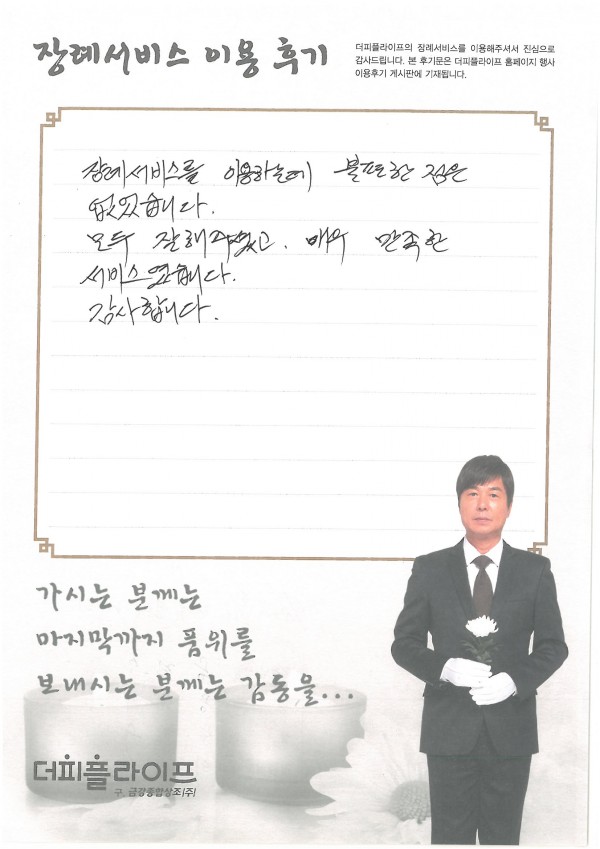 장례서비스 이용 후기
더피플라이프의 장례서비스를 이용해주셔서 진심으로
감사드립니다. 본 후기문은 더피플라이프 홈페이지 행사
이용후기 게시판에 기재됩니다.
장례서비스를 이용하는데 불편한 점은
없었습니다.
모두 잘해주셨고, 매우 만족한
서비스였습니다.
감사합니다.
가시는 분께는
마지막까지 품위를
보내시는 분께는 감동을...
더피플라이프
구. 금강종합상조(주)